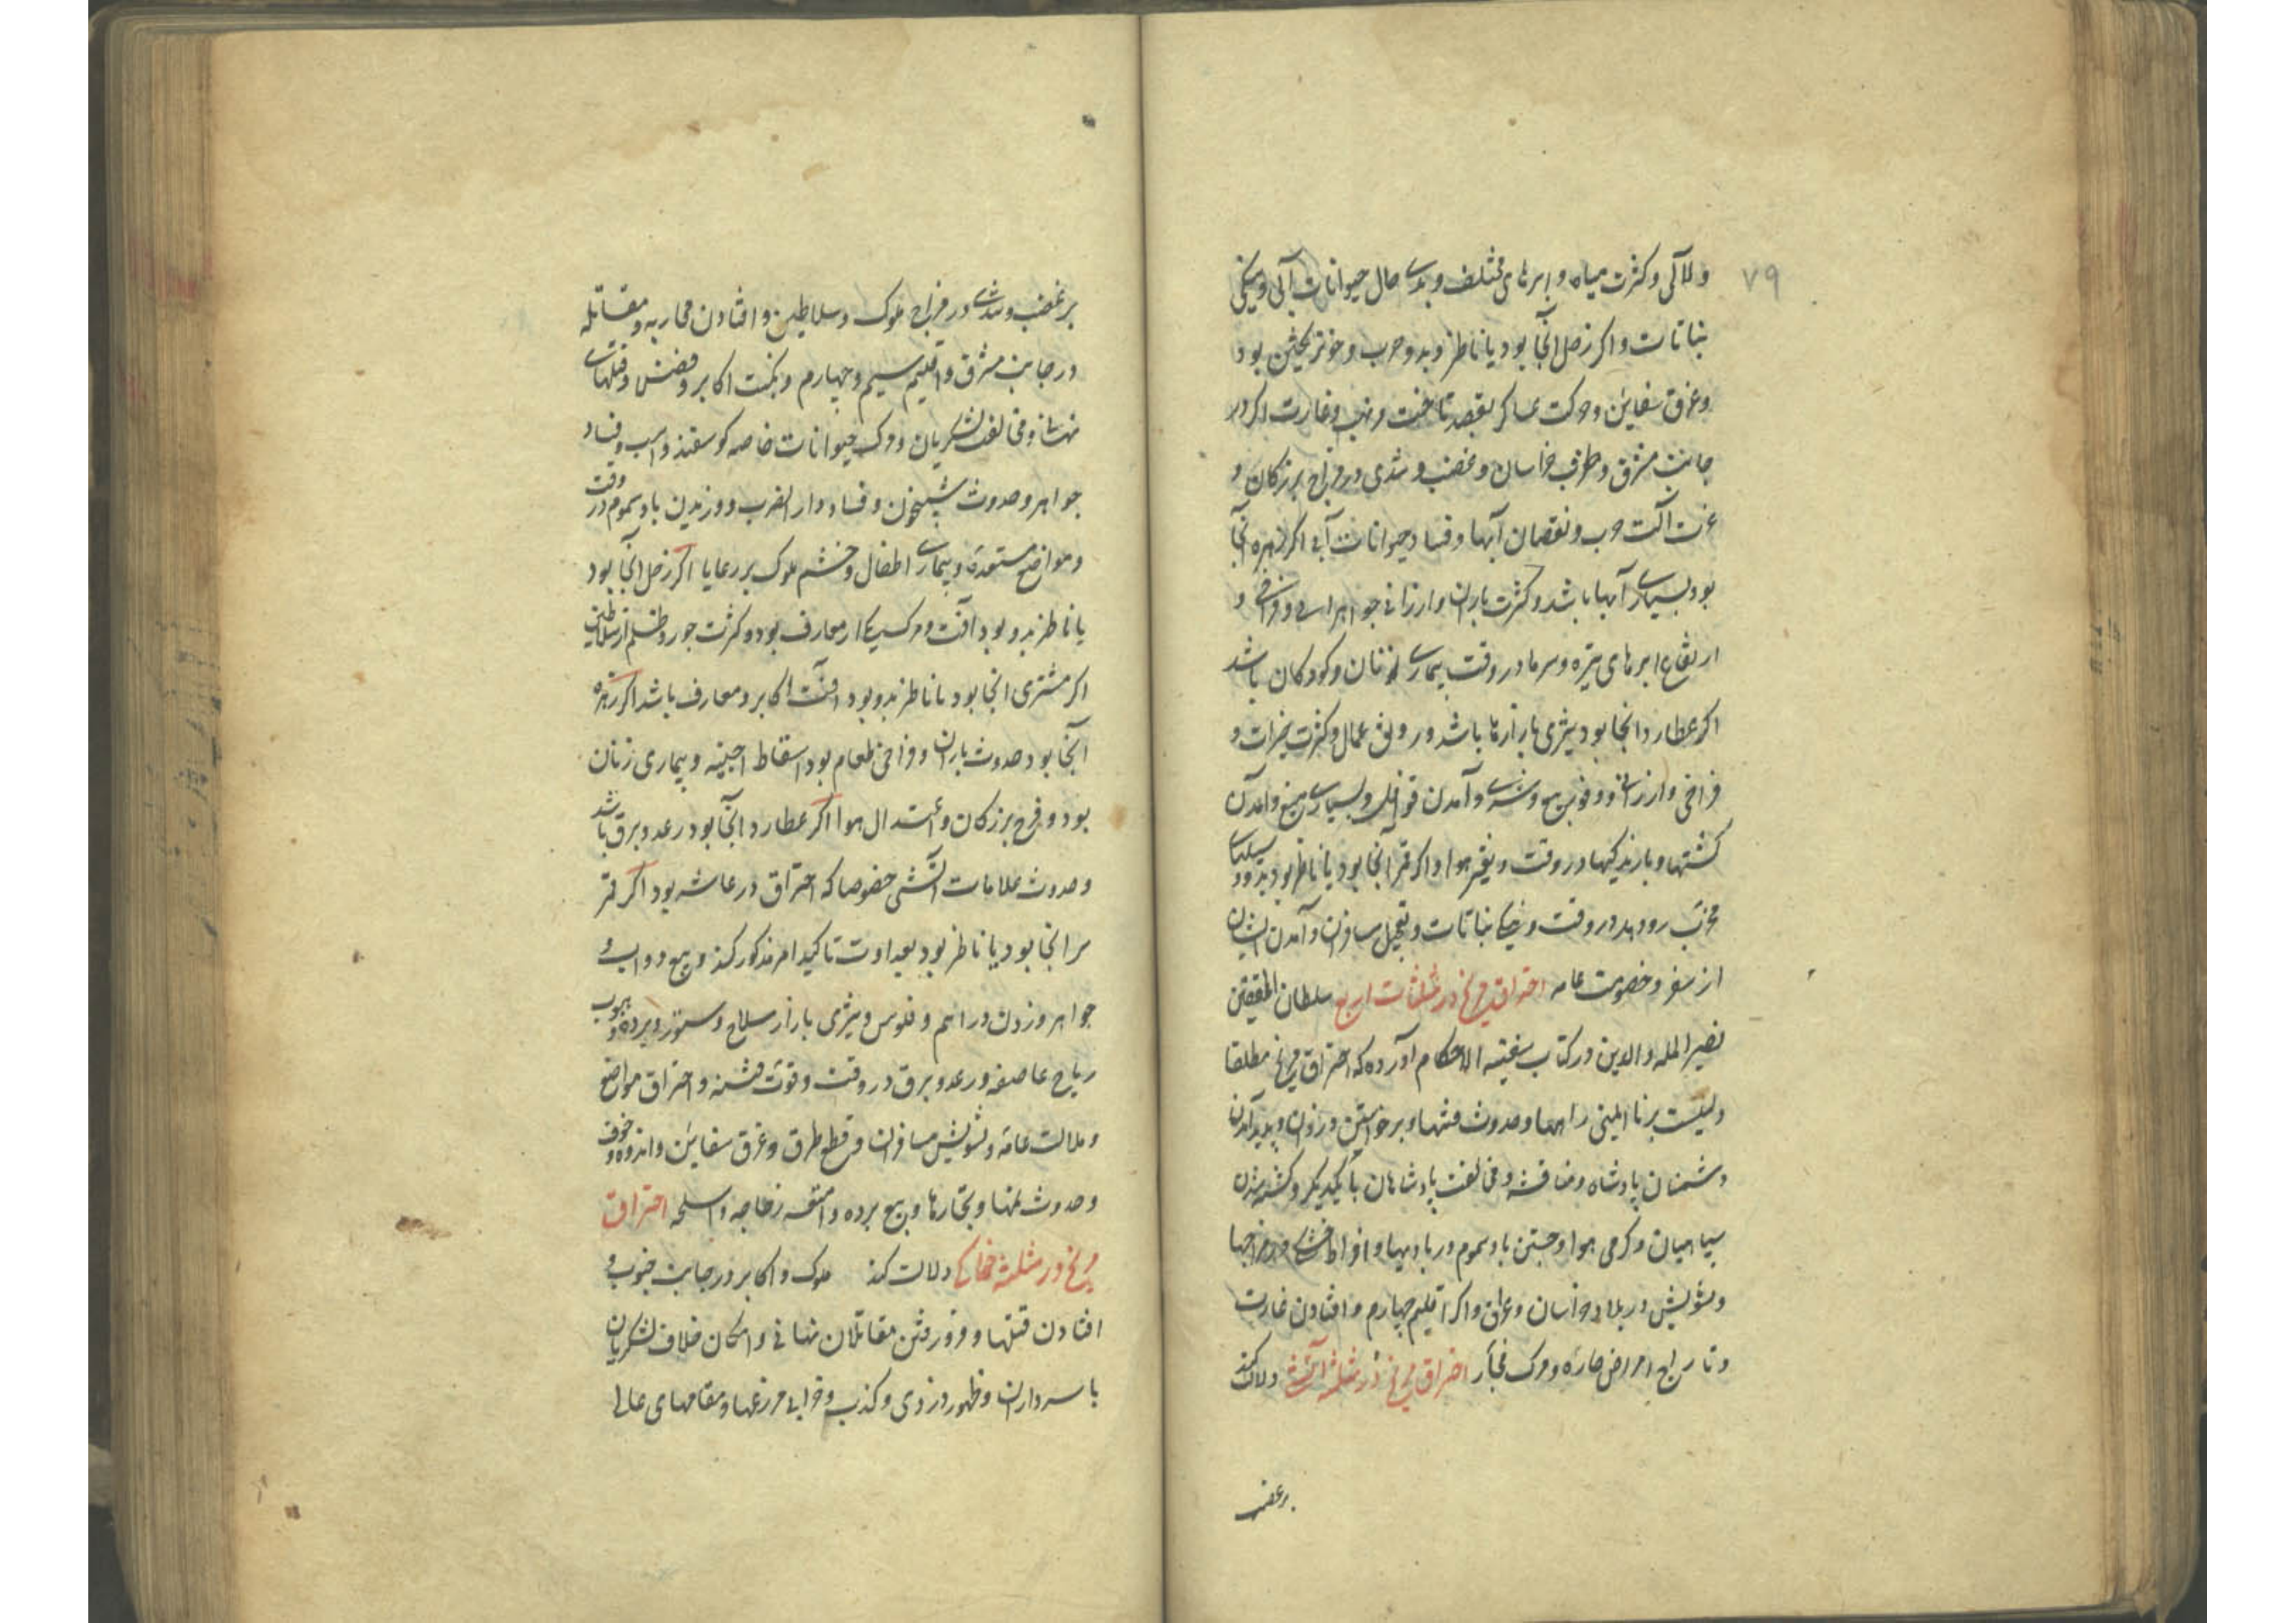 ۷۹
ولآلی و کثرت میاه و ابرهای مختلف و بدی حال حیوانات آبی و نیکی
نباتات و اکر زحل آنجا بود یا ناظر و بدو حرب و خونریختن بود
و غرق سفاین و حرکت عساکر بقصد تاخت و نهب و غارت اکر در
جانب مشرق و طرف خراسان و غضب و تندی در مزاج بزرکان و
عزت آلت حرب و نقصان آبها و فساد حیوانات آبی اکر زهره آنجا
بود بسیاری آبها باشد و کثرت باران و ارزانی جواهر و فراخی و
ارتفاع ابرهای تیره و سرما در وقت بیماری زنان و کودکان باشد
اکر عطارد آنجا بود تیزی بازارها باشد و رونق عمال و کثرت خیرات و
فراخی و ارزانی و وفور بیع و شری و آمدن قوافل و بسیاری میغ و آمدن
کشتیها و بارندکیها در وقت و تغیر هوا و اکر قمر آنجا بود یا ناظر بود بدو سیلهای
مخرب رود بدر وقت و نباتات و تعجیل مسافران و آمدن ایشان
از سفر و خصومت عامه احتراق مریخ در مثلثات اربع سلطان المحققین
نصیر المله والدین در کتاب سفینه الاحکام آورده که احتراق مریخ مطلقا
دلیلست بر نا ایمنی راهها و حدوث فتنها و برخواستن دزدان و پدید آمدن
دشمنان پادشاه و مناقشه و مخالفت پادشاهان با یکدیکر و کشته شدن
سپاهیان و کرمی هوا و جستن باد سموم در بادیها و افراط خشکی در مزاجها
و تشویش در بلاد خراسان و عراق و اکر اقلیم چهارم و افتادن غارت
و تاراج امراض حاره و مرک فجأر احتراق مریخ در مثلثه آتشی دلالت کند
بر غضب
بر غضب و تندی در مزاج ملوک و سلاطین و افتادن محاربه و مقاتله
در جانب مشرق و اقلیم سیم و چهارم و نکبت اکابر و فتنهای
نهانی و مخالفت لشکریان و مرک حیوانات خاصه کوسفند و اسب و فساد
جواهر و حدوث شبیخون و فساد دار الضرب و وزیدن باد سموم در وقت
و مواضع مستعده و بیماری اطفال و خشم ملوک بر رعایا اکر زحل آنجا بود
یا ناظر بدو بود آفت و مرک یکی از معارف بود و کثرت جور و ظلم از سلاطین
اکر مشتری آنجا بود یا ناظر بدو بود آفت اکابر و معارف باشد اکر زهره
آنجا بود حدوث باران و فراخی طعام بود اسقاط اجنینه و بیماری زنان
بود و فرح بزرکان و اعتدال هوا اکر عطارد آنجا بود رعد و برق باشد
و حدوث علامات آتشی خصوصا که احتراق در عاشر بود اکر قمر
آنجا بود یا ناظر بود بعداوت تاکید امر مذکور کند و بیع دواب و
جواهر و زدن دراهم و فلوس و تیزی بازار سلاح و ستور و برده و هبوب
ریاح عاصفه و رعد و برق در وقت و قوت فتنه و احتراق مواضع
و ملالت عامه و تشویش مسافران و قطع طرق و غرق سفاین و اندوه و خوف
و حدوث تبها و بیع برده و امتعه و اسلحه احتراق
مریخ در مثلثه خاکی دلالت کند ملوک و اکابر در جانب جنوب و
افتادن قتلها و فرو رفتن مقاتلان نهانی و امکان خلاف لشکریان
با سرداران و ظهور دزدی و کذب و خرابی مزرعها و مقامهای عالی